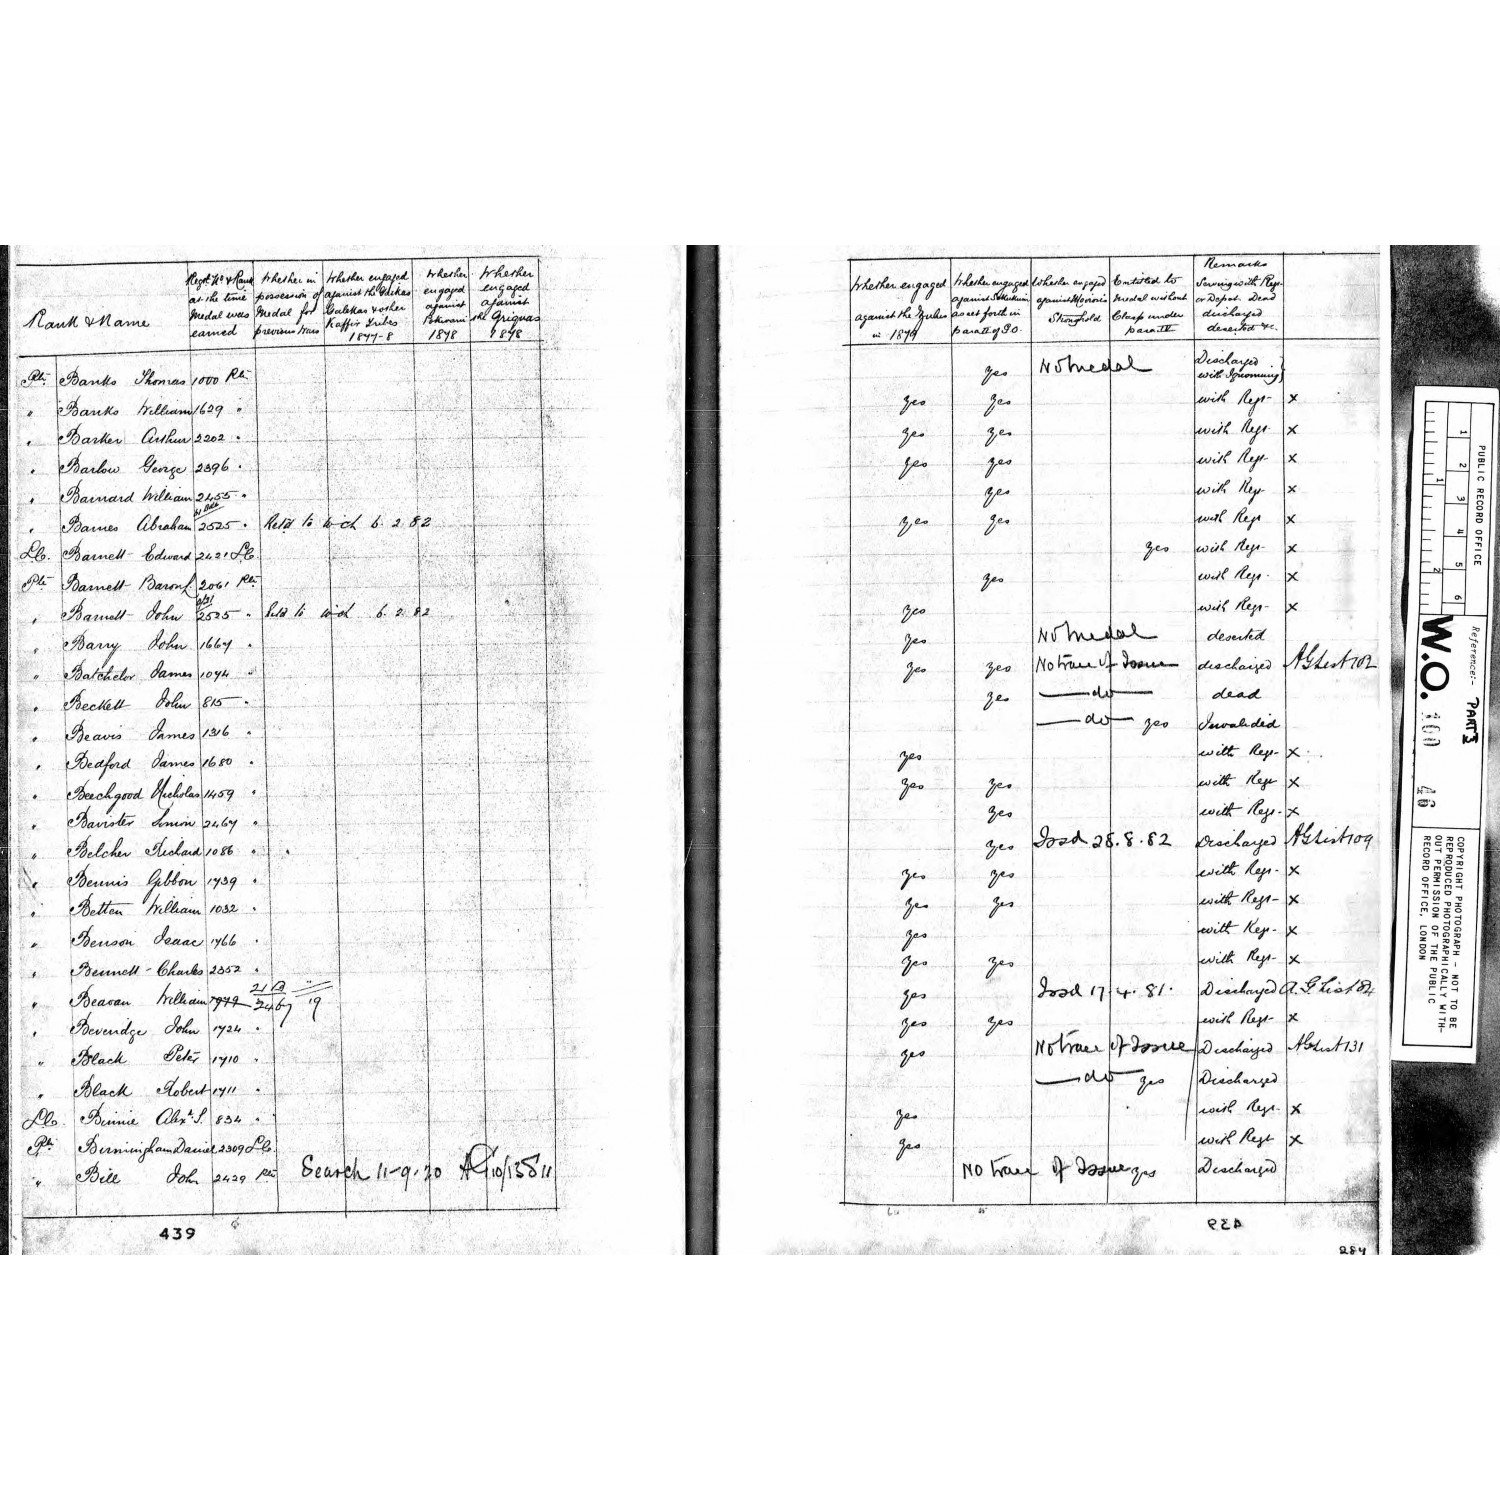 Rank & Name
Regtl. No. & Rank at the time Medal was earned
Whether in possession of Medal for previous Wars
Whether engaged against the Gaikas Galekas & other Kaffir Tribes 1877-8
Whether engaged against Pokwani 1878
Whether engaged against the Griquas 1878
Whether engaged against the Zulus in 1879
Whether engaged against Sekukuni as set forth in para II of GO.
Whether engaged against Moirosi's Stronghold
Entitled to medal without Clasp under para IV
Remarks Serving with Regt. or Depot. Dead discharged deserted &c.
Pte. Banks Thomas 1000 Pte. yes No medal Discharged with Ignominy
" Banks William 1629 " yes yes with Regt- x
" Barker Arthur 2202 " yes yes with Regt x
" Barlow George 2396 " yes yes with Regt- x
" Barnard William 2455 " yes with Regt- x
" Barnes Abraham 2525 " Retd to Wich 6.2.82 yes yes with Regt x
L.C. Barnett Edward 2421 L.C. yes with Regt- x
Pte. Barnett Baron 2061 Pte. yes with Regt- x
" Barnett John 2525 " Retd to Wich 6.2.82 yes with Regt- x
" Barry John 1667 " yes No medal deserted
" Batchelor James 1074 " yes yes No trace of Issue discharged AG List 102
" Beckett John 815 " yes — do — dead
" Beavis James 1316 " — do — yes Invalided
" Bedford James 1680 " yes with Regt- x
" Beechgood Nicholas 1459 " yes yes with Regt x
" Bavister Simon 2467 " yes with Regt- x
" Belcher Richard 1086 " yes Issd 28.8.82 Discharged AG List 109
" Bennis Gibbon 1739 " yes yes with Regt- x
" Betten William 1032 " yes yes with Regt- x
" Benson Isaac 1766 " yes with Regt- x
" Bennett Charles 2352 " yes yes with Regt- x
" Beavan William 1979 2467 19 yes Issd 17.4.81. Discharged A.G. List 84
" Beveridge John 1724 " yes yes with Regt- x
" Black Peter 1710 " yes No trace of Issue Discharged AG List 131
" Black Robert 1711 " — do — yes Discharged
L.C. Binnie Alexr. S. 834 " yes with Regt- x
Pte. Birmingham Daniel 2309 L.C. yes with Regt x
" Bill John 2429 Pte. Search 11-9-20 No trace of Issue yes Discharged
439
439
284
PUBLIC RECORD OFFICE
1 2 3 4 5 6
1 2
Reference:- PART 3
W.O. 100 46
COPYRIGHT PHOTOGRAPH - NOT TO BE
REPRODUCED PHOTOGRAPHICALLY WITH-
OUT PERMISSION OF THE PUBLIC
RECORD OFFICE, LONDON